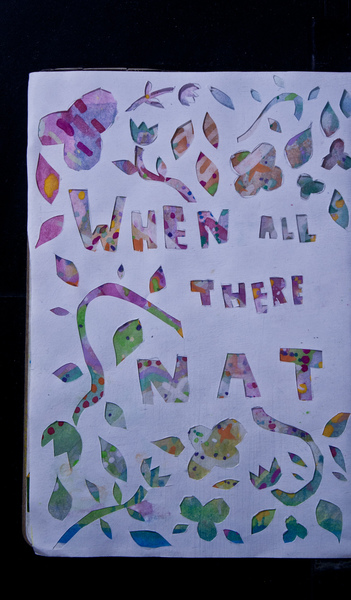 WHEN ALL
THERE
NAT